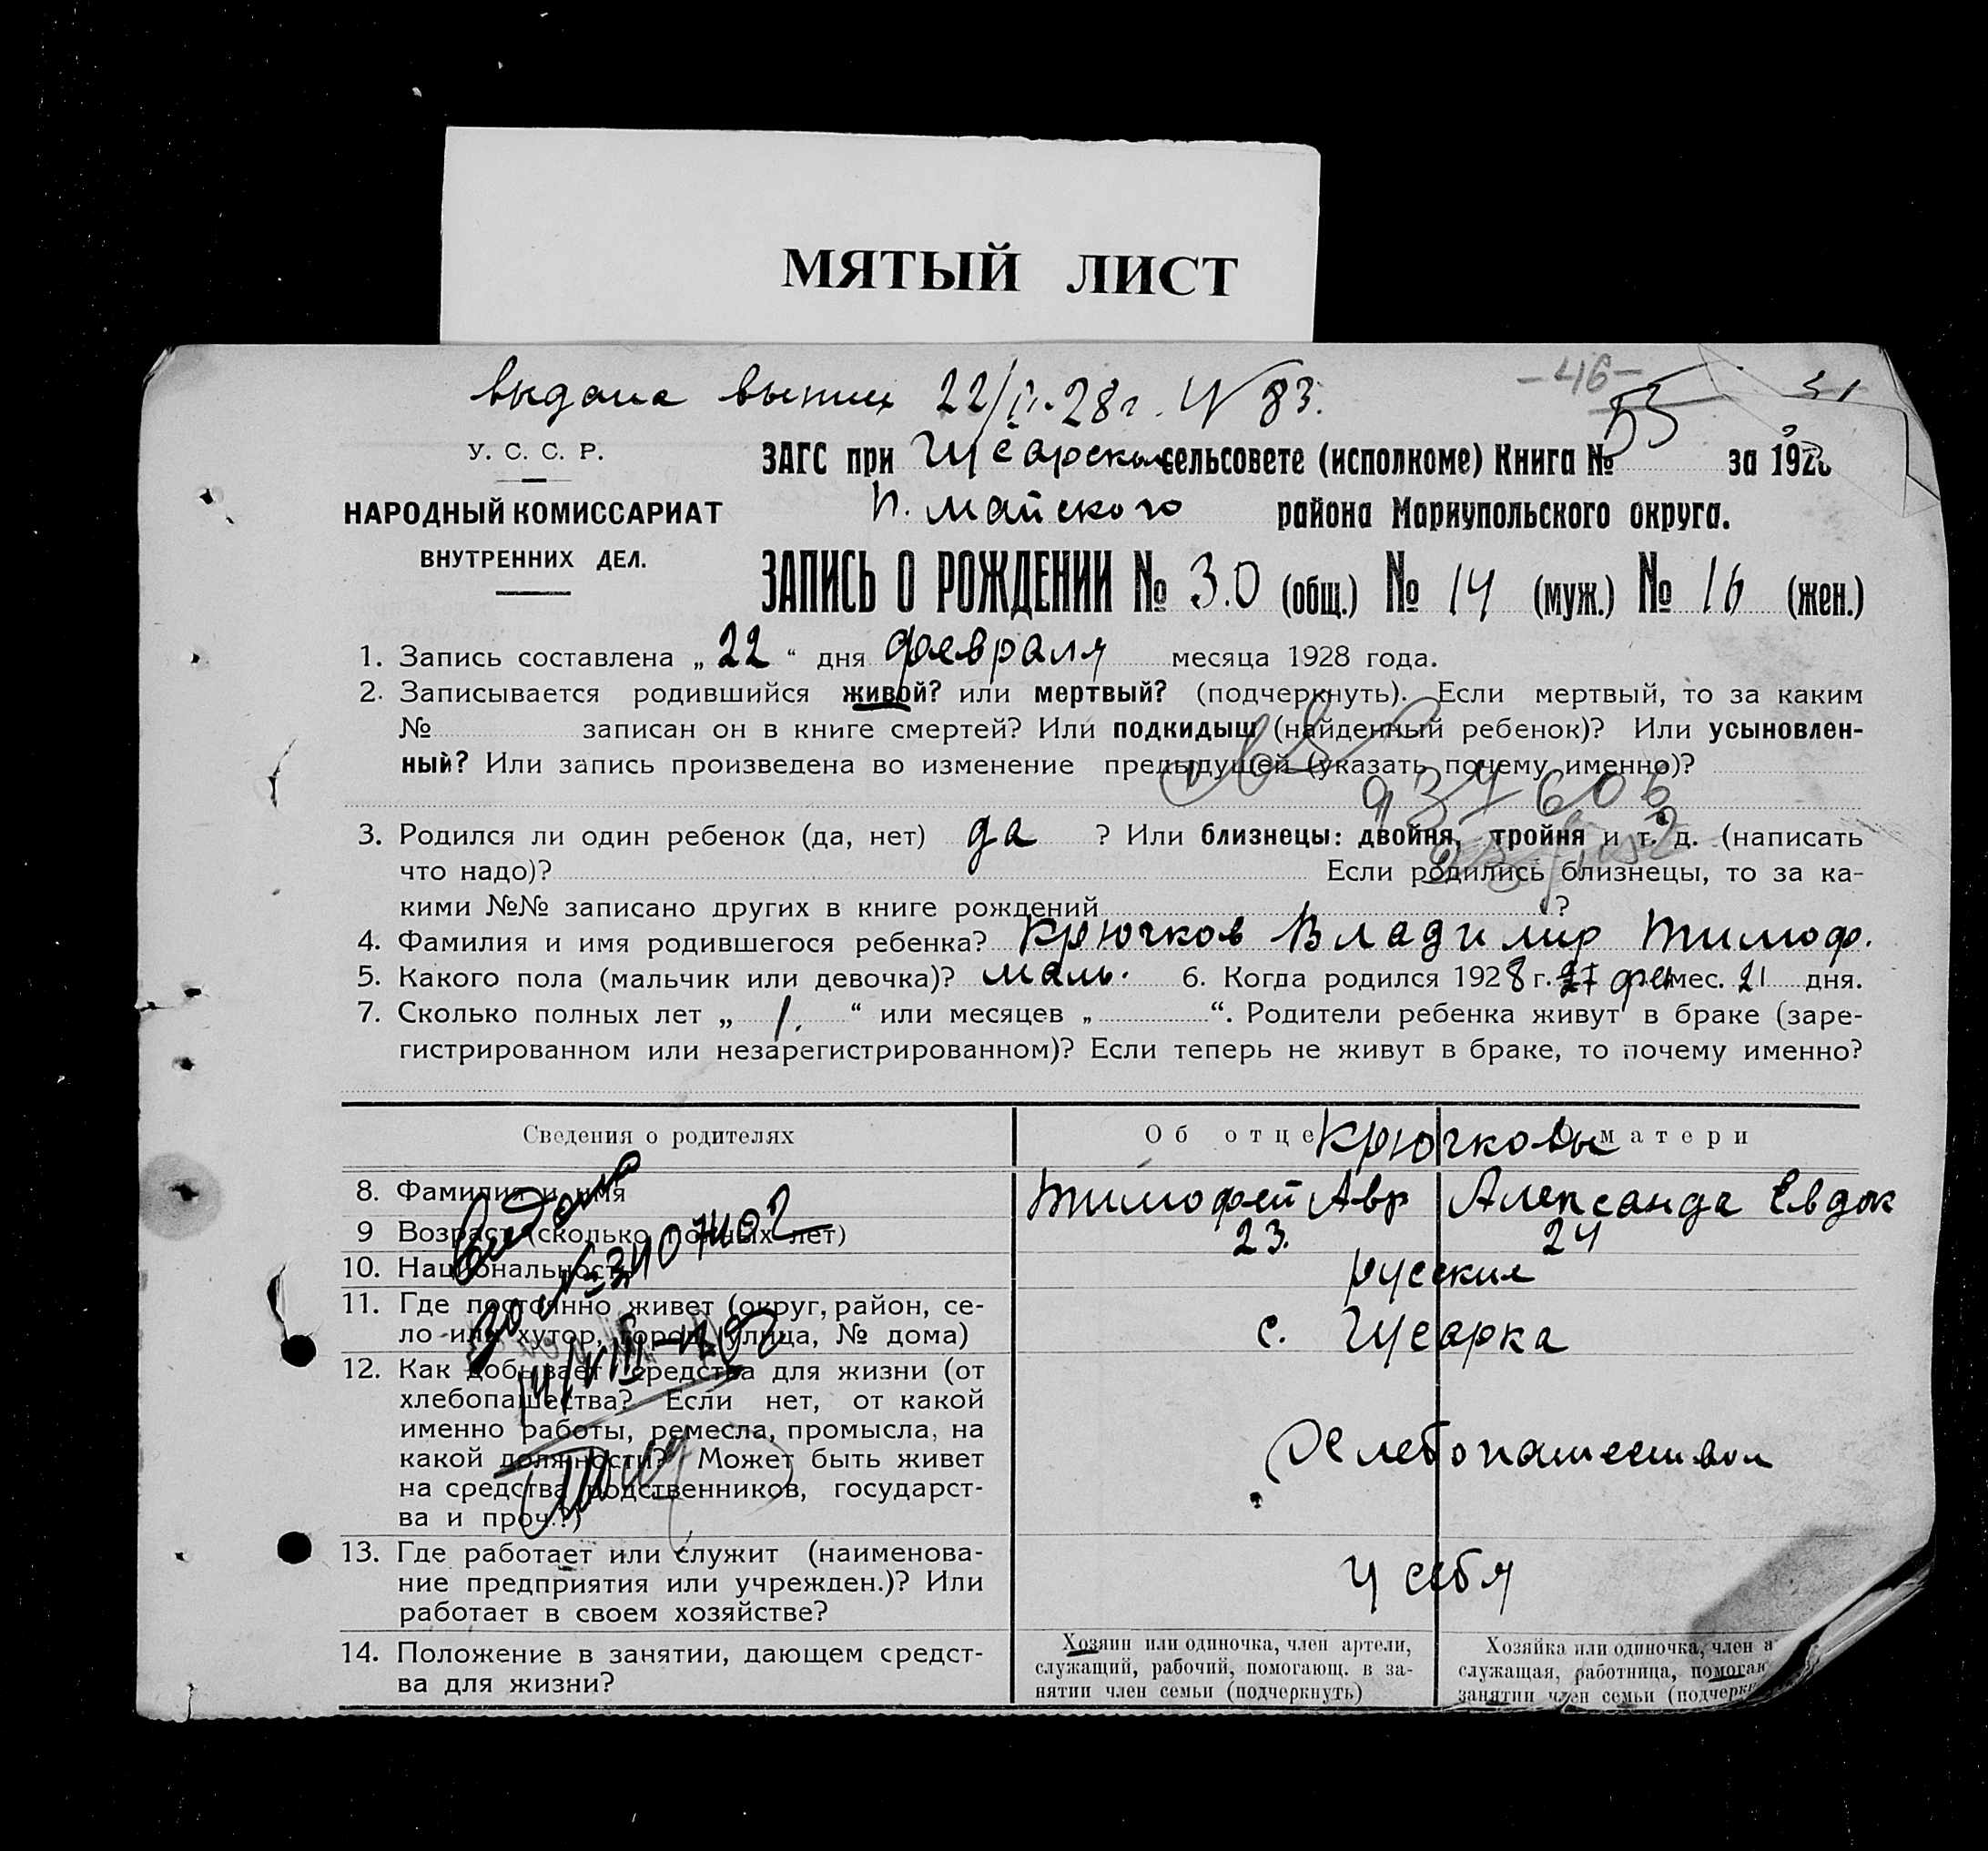 МЯТЫЙ ЛИСТ
выдана выпись 22/II-28 г. № 83.
-46-
У. С. С. Р.
НАРОДНЫЙ КОМИССАРИАТ
ВНУТРЕННИХ ДЕЛ.
ЗАГС при Гусарском сельсовете (исполкоме) Книга № 53 за 1928
П. Майского района Мариупольского округа.
ЗАПИСЬ О РОЖДЕНИИ № 30 (общ.) № 14 (муж.) № 16 (жен.)
1. Запись составлена „ 22 “ дня февраля месяца 1928 года.
2. Записывается родившийся живой? или мертвый? (подчеркнуть). Если мертвый, то за каким
№ записан он в книге смертей? Или подкидыш (найденный ребенок)? Или усыновлен-
ный? Или запись произведена во изменение предыдущей (указать почему именно)?
937606
3. Родился ли один ребенок (да, нет) да ? Или близнецы: двойня, тройня и т. д. (написать
что надо)? Если родились близнецы, то за ка-
кими №№ записано других в книге рождений ?
4. Фамилия и имя родившегося ребенка? Крючков Владимир Тимоф.
5. Какого пола (мальчик или девочка)? маль. 6. Когда родился 1928 г. фев мес. 21 дня.
7. Сколько полных лет „ 1. “ или месяцев „ “. Родители ребенка живут в браке (заре-
гистрированном или незарегистрированном)? Если теперь не живут в браке, то почему именно?
Сведения о родителях Об отце О матери
Крючковы
8. Фамилия и имя Тимофей Авр Александа Евдок
9 Возраст (сколько полных лет) 23. 24
10. Национальность русские
11. Где постоянно живет (округ, район, се-
ло или хутор, город, улица, № дома) с. Гусарка
12. Как добывает средства для жизни (от
хлебопашества? Если нет, от какой
именно работы, ремесла, промысла, на
какой должности? Может быть живет
на средства родственников, государст-
ва и проч.?)
Хлебопашеством
13. Где работает или служит (наименова-
ние предприятия или учрежден.)? Или
работает в своем хозяйстве?
у себя
14. Положение в занятии, дающем средст-
ва для жизни?
Хозяин или одиночка, член артели,
служащий, рабочий, помогающ. в за-
нятии член семьи (подчеркнуть)
Хозяйка или одиночка, член а
служащая, работница, помогаю
занятии член семьи (подчеркн